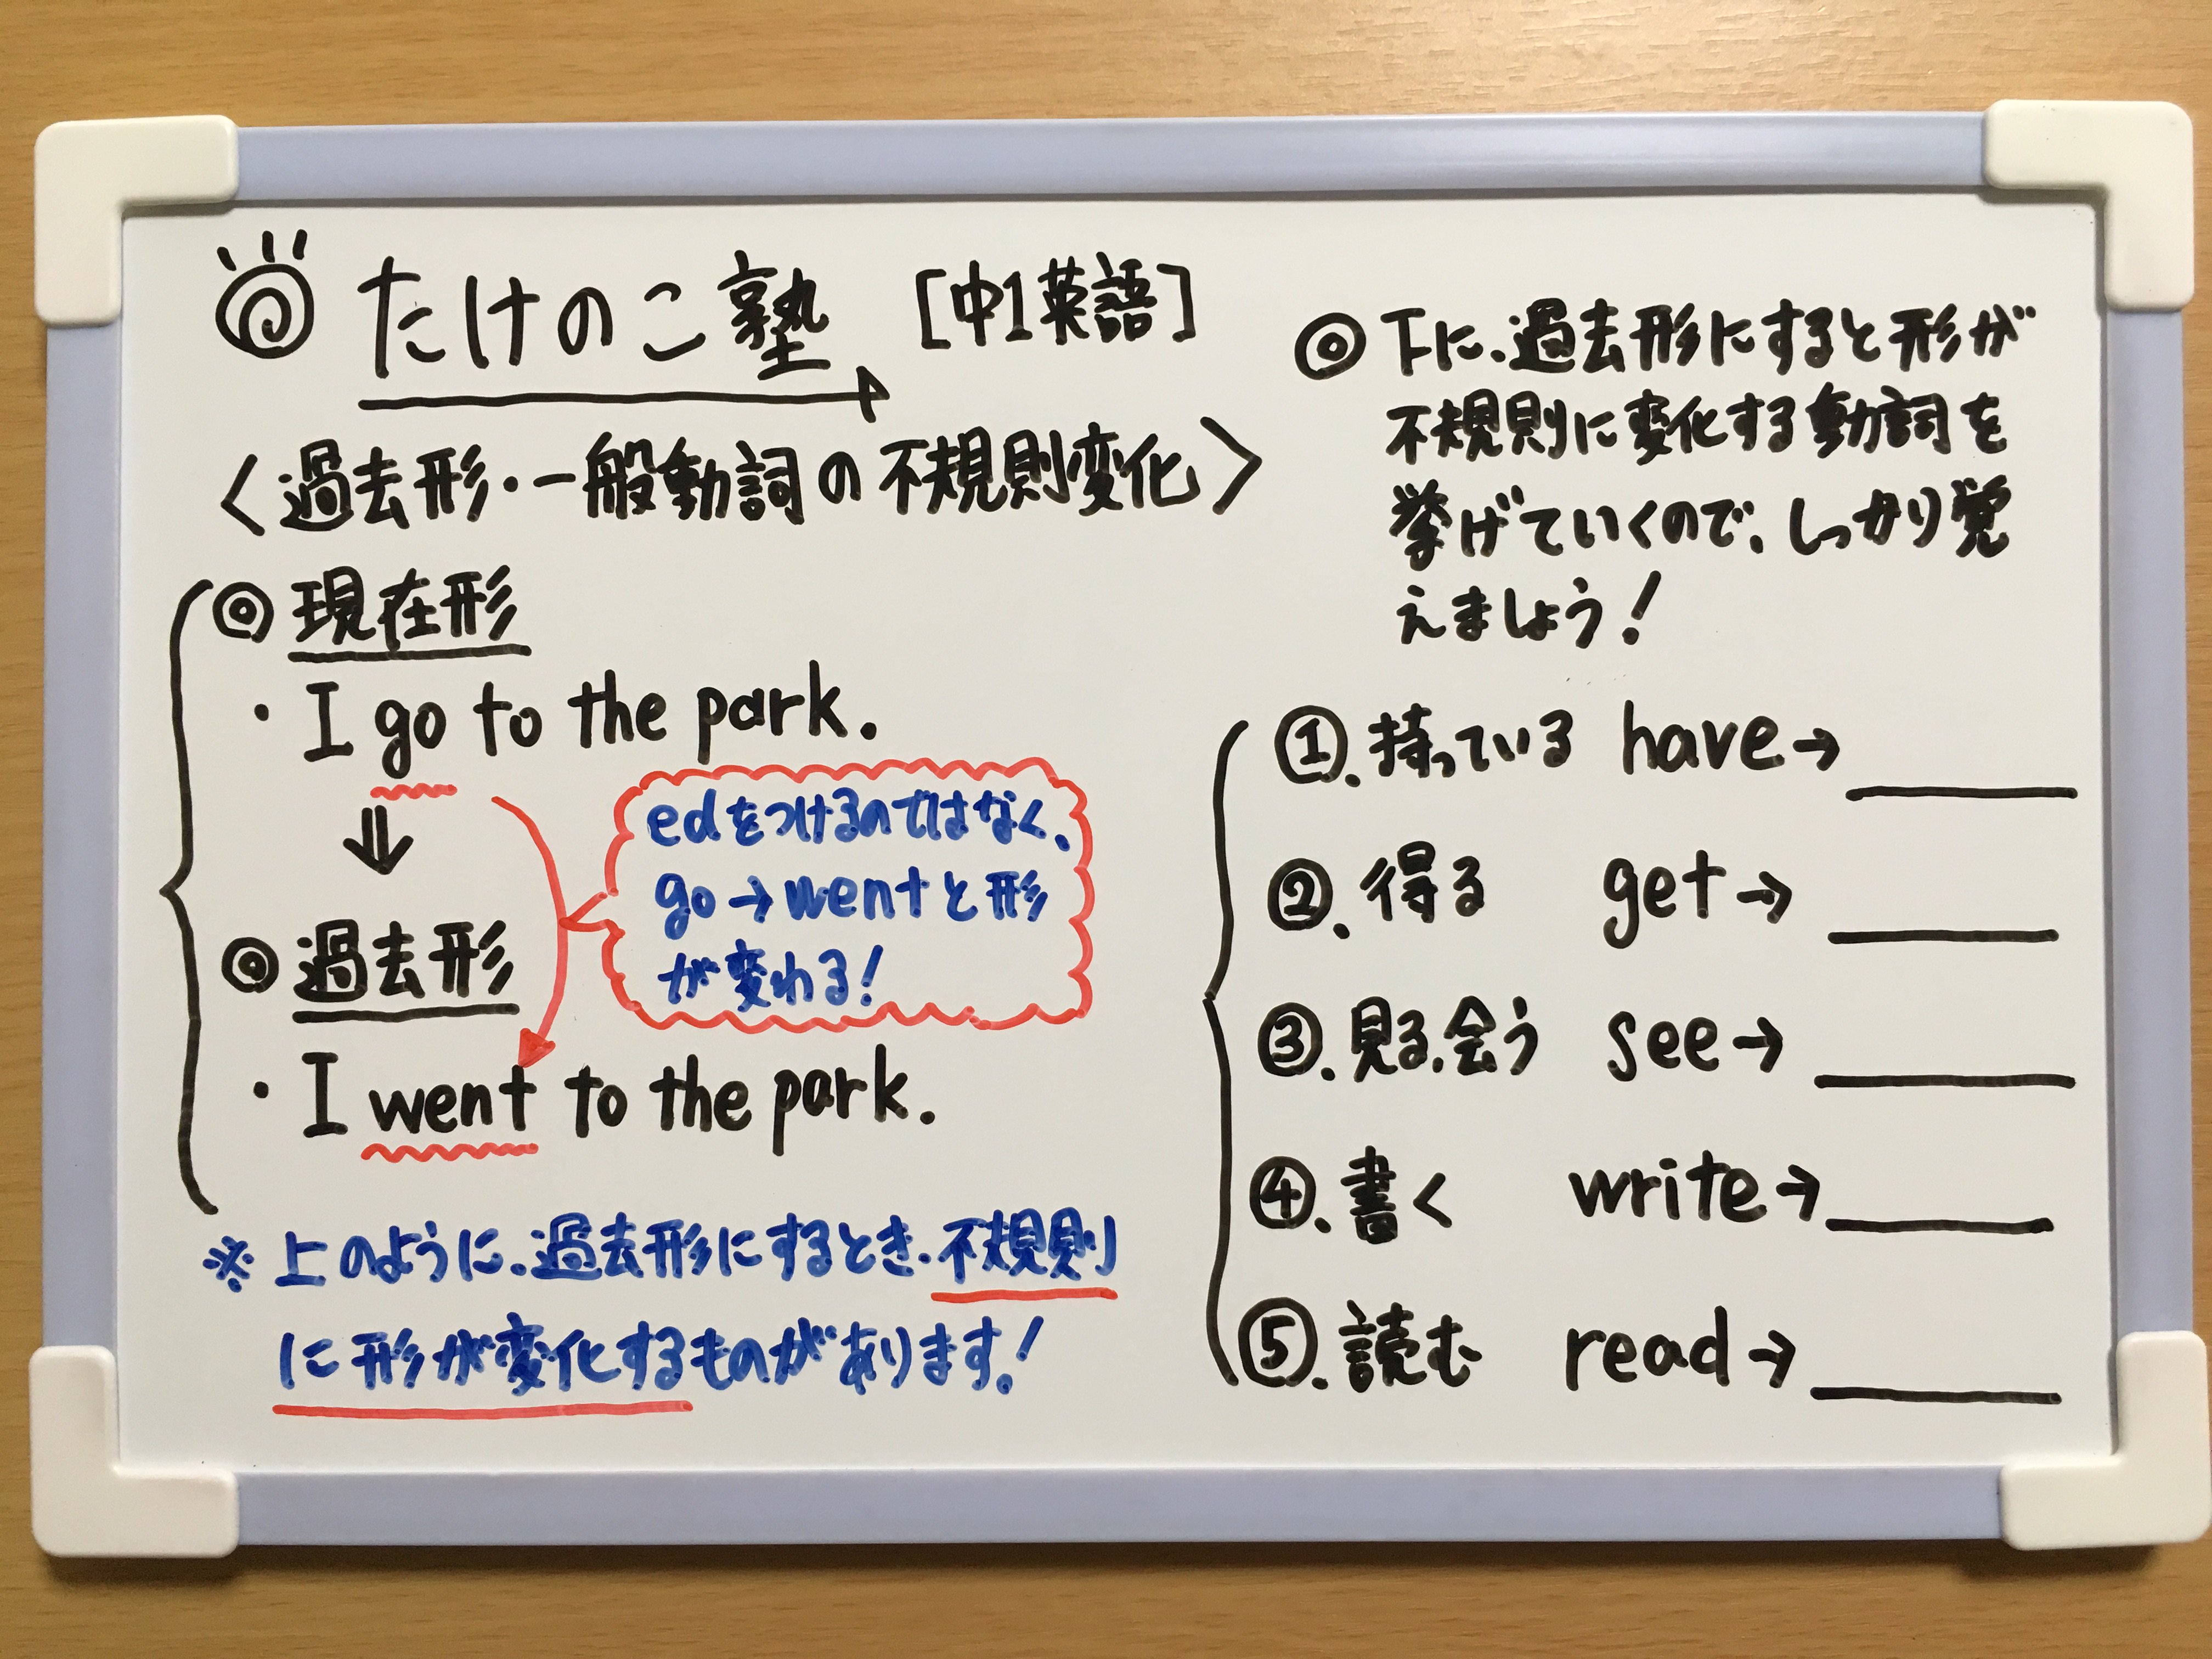 たけのこ塾 [中1英語]
<過去形・一般動詞の不規則変化>
◎現在形
・I go to the park.
⇓
edをつけるのではなく、
go→wentと形
が変わる!
◎過去形
・I went to the park.
※上のように、過去形にするとき、不規則
に形が変化するものがあります!
◎下に、過去形にすると形が
不規則に変化する動詞を
挙げていくので、しっかり覚
えましょう!
①.持っている have→
②.得る get→
③.見る、会う see→
④.書く write→
⑤.読む read→